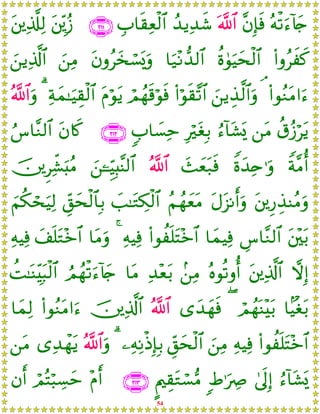 جَآءَتْهُ فَإِنَّ ٱللَّهَ شَدِيدُ ٱلْعِقَابِ ﴿٢١١﴾ زُيِّنَ لِلَّذِينَ
كَفَرُوا۟ ٱلْحَيَوٰةُ ٱلدُّنْيَا وَيَسْخَرُونَ مِنَ ٱلَّذِينَ
ءَامَنُوا۟ ۘ وَٱلَّذِينَ ٱتَّقَوْا۟ فَوْقَهُمْ يَوْمَ ٱلْقِيَـٰمَةِ ۗ وَٱللَّهُ
يَرْزُقُ مَن يَشَآءُ بِغَيْرِ حِسَابٍ ﴿٢١٢﴾ كَانَ ٱلنَّاسُ
أُمَّةً وَٰحِدَةً فَبَعَثَ ٱللَّهُ ٱلنَّبِيِّـۧنَ مُبَشِّرِينَ
وَمُنذِرِينَ وَأَنزَلَ مَعَهُمُ ٱلْكِتَـٰبَ بِٱلْحَقِّ لِيَحْكُمَ
بَيْنَ ٱلنَّاسِ فِيمَا ٱخْتَلَفُوا۟ فِيهِ ۚ وَمَا ٱخْتَلَفَ فِيهِ
إِلَّا ٱلَّذِينَ أُوتُوهُ مِنۢ بَعْدِ مَا جَآءَتْهُمُ ٱلْبَيِّنَـٰتُ
بَغْيًۢا بَيْنَهُمْ ۖ فَهَدَى ٱللَّهُ ٱلَّذِينَ ءَامَنُوا۟ لِمَا
ٱخْتَلَفُوا۟ فِيهِ مِنَ ٱلْحَقِّ بِإِذْنِهِۦ ۗ وَٱللَّهُ يَهْدِى مَن
يَشَآءُ إِلَىٰ صِرَٰطٍ مُّسْتَقِيمٍ ﴿٢١٣﴾ أَمْ حَسِبْتُمْ أَن